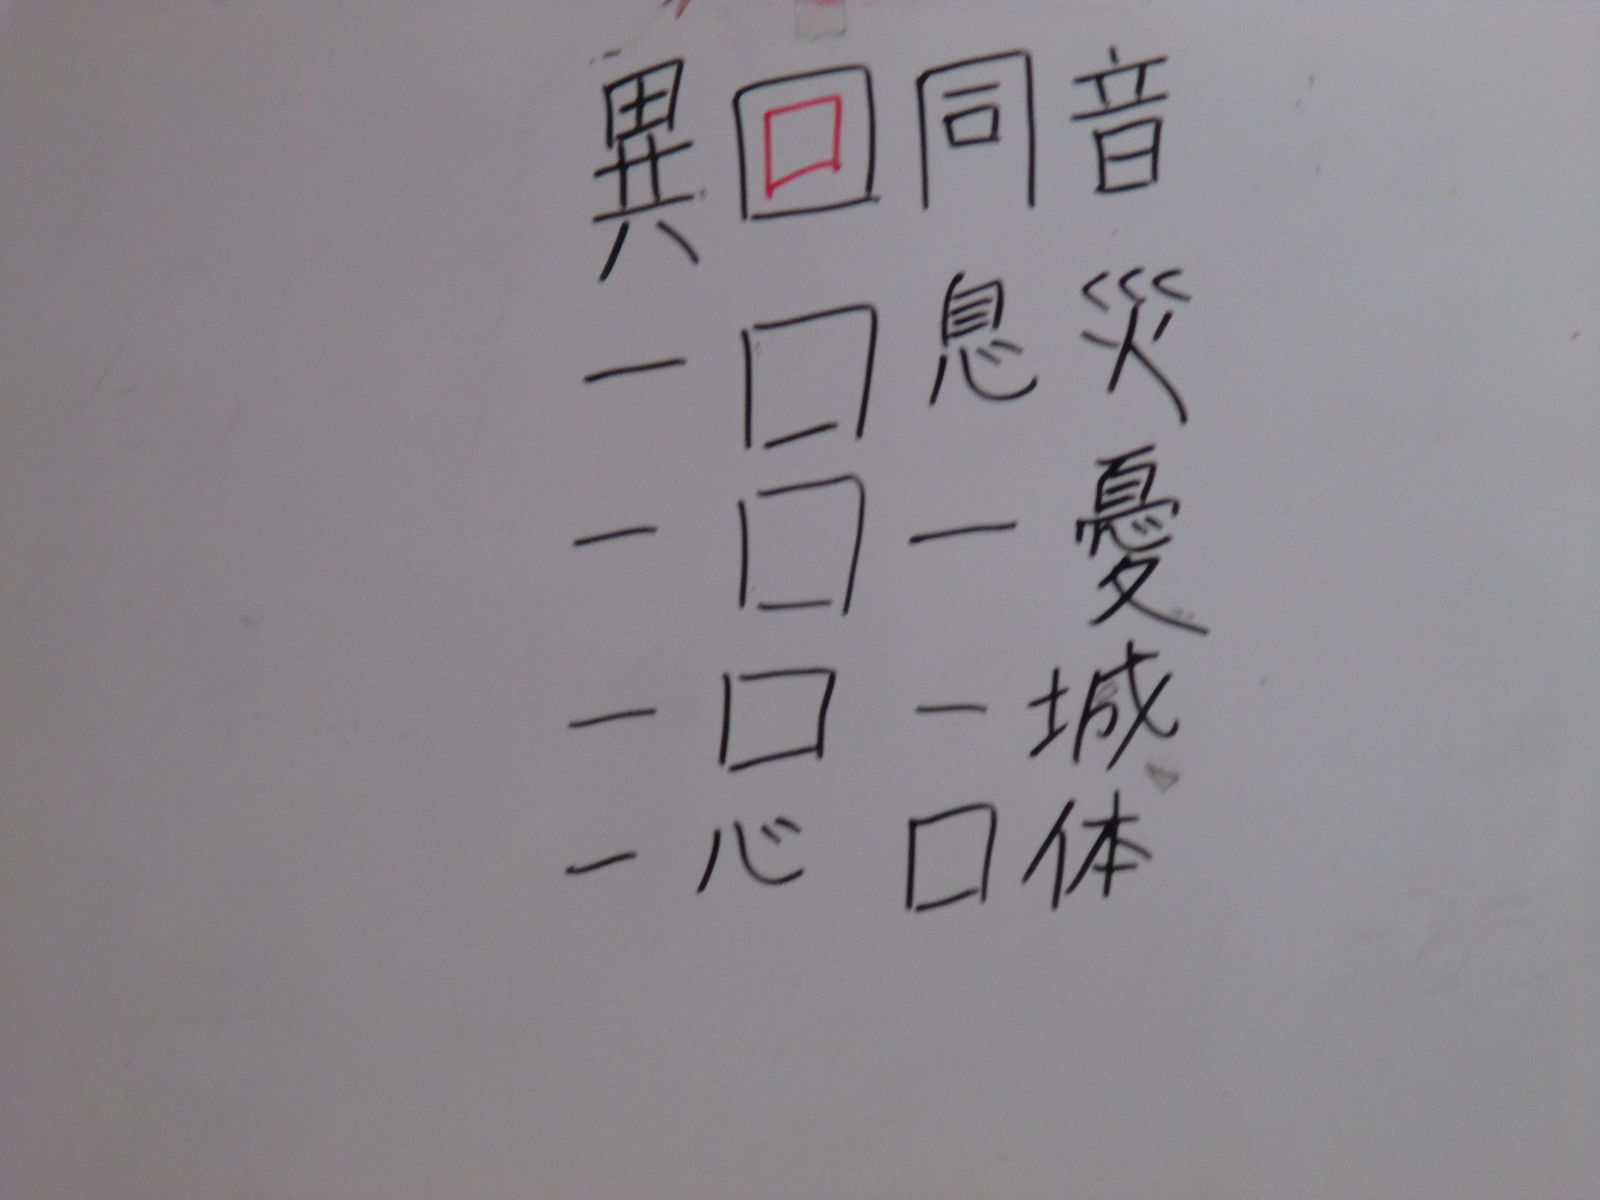 異口同音
一□息災
一□一憂
一□一城
一心□体